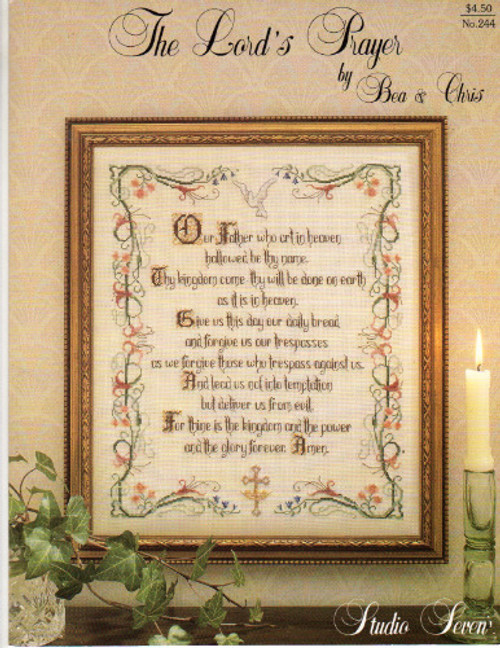 $4.50
No.244
The Lord's Prayer
by
Bea & Chris
Our Father who art in heaven,
hallowed be thy name.
Thy kingdom come thy will be done on earth
as it is in heaven.
Give us this day our daily bread,
and forgive us our trespasses
as we forgive those who trespass against us.
And lead us not into temptation
but deliver us from evil.
For thine is the kingdom and the power
and the glory forever. Amen.
Studio Seven